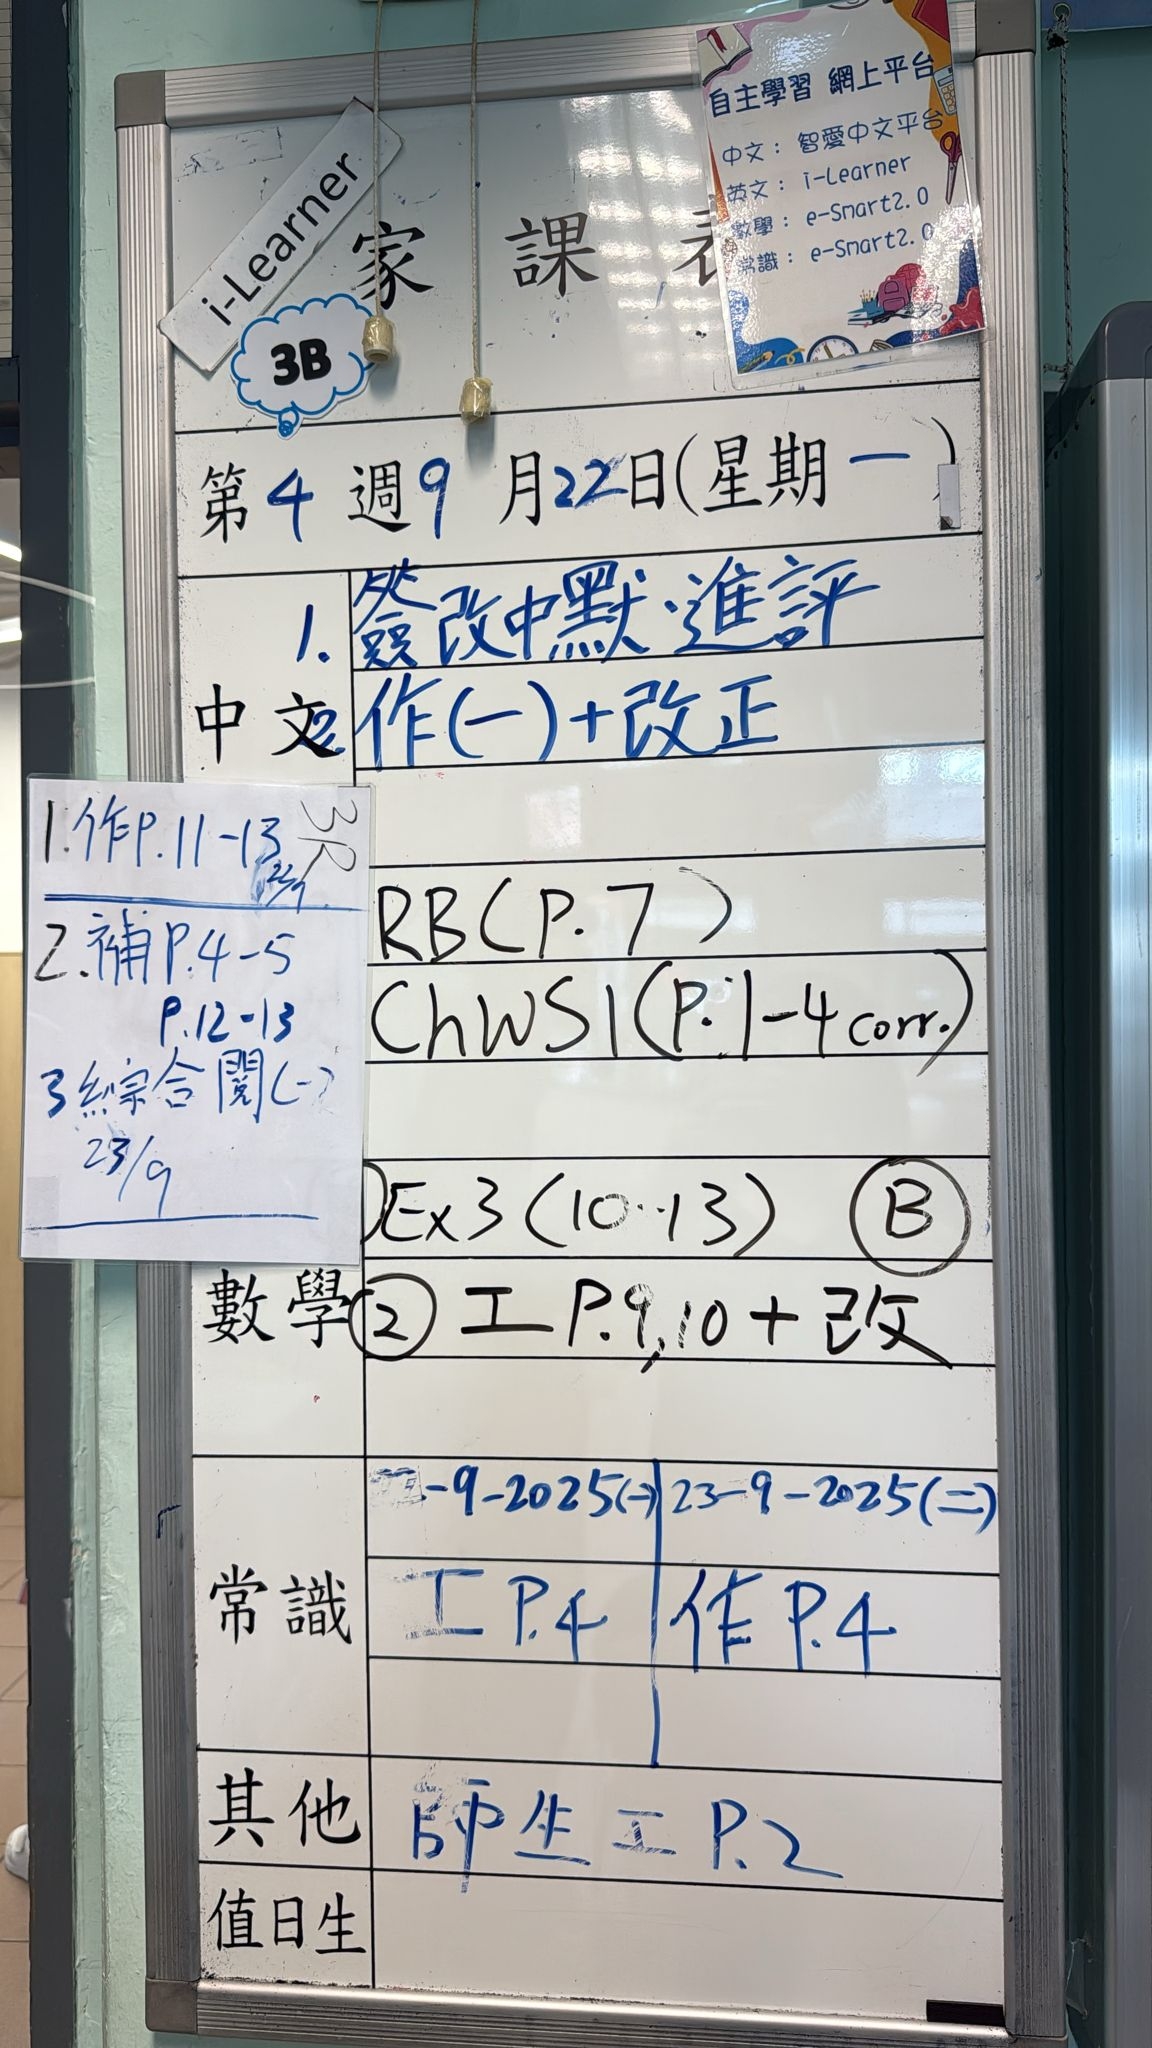 i-Learner
3B
家課表
自主學習 網上平台
中文：智愛中文平台
英文：i-Learner
數學：e-Smart2.0
常識：e-Smart2.0
第4週9月22日(星期一)
中文
1. 簽改中默．進評
2. 作(一)+改正
3R
1.作P.11-13
22/9
2.補P.4-5
P.12-13
3 綜合閱(一)
23/9
RB(P.7)
ChWS1(P.1-4 corr.)
數學
Ex3(10-13) B
② 工 P.9,10+改
常識
-9-2025(一) 23-9-2025(二)
工 P.4 作 P.4
其他 師生工 P.2
值日生